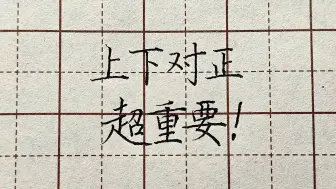 上下对正
超重要!